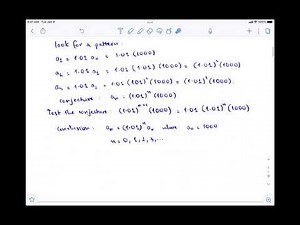 look for a pattern:
a₁ = 1.01 a₀ = 1.01 (1000)
a₂ = 1.01 a₁ = 1.01 (1.01) (1000) = (1.01)² (1000)
a₃ = 1.01 a₂ = 1.01 (1.01)² (1000) = (1.01)³ (1000)
conjecture: aₙ = (1.01)ⁿ (1000)
Test the conjecture: (1.01)ⁿ⁺¹ (1000) = 1.01 (1.01)ⁿ (1000)
conclusion: aₙ = (1.01)ⁿ a₀ where a₀ = 1000
n = 0, 1, 2, 3, ...